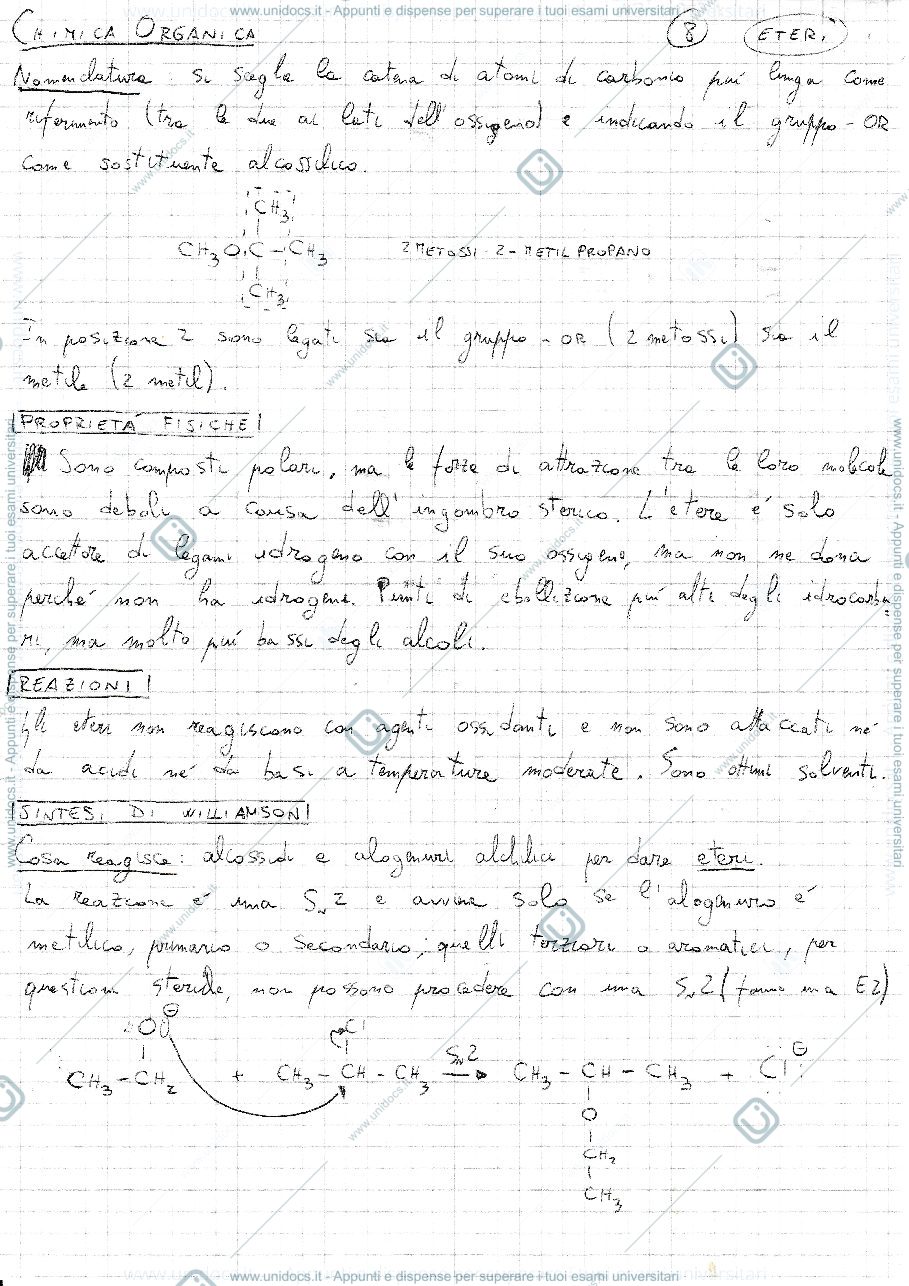 www.unidocs.it - Appunti e dispense per superare i tuoi esami universitari
CHIMICA ORGANICA 8 ETERI
Nomenclatura: si sceglie la catena di atomi di carbonio piú lunga come
riferimento (tra le due ai lati dell'ossigeno) e indicando il gruppo -OR
come sostituente alcossilico.
CH3
CH3O-C-CH3 2 METOSSI-2-METIL PROPANO
CH3
In posizione 2 sono legati sia il gruppo -OR (2 metossi) sia il
metile (2 metil).
PROPRIETÁ FISICHE
Sono composti polari, ma le forze di attrazione tra le loro molecole
sono deboli a causa dell'ingombro sterico. L'etere é solo
accettore di legami idrogeno con il suo ossigeno, ma non ne dona
perché non ha idrogeni. Punti di ebollizione piú alti degli idrocarbu
ri, ma molto piú bassi degli alcoli.
REAZIONI
Gli eteri non reagiscono con agenti ossidanti e non sono attaccati né
da acidi né da basi a temperature moderate. Sono ottimi solventi.
SINTESI DI WILLIAMSON
Cosa reagisce: alcossidi e alogenuri alchilici per dare eteri.
La reazione é una SN2 e avviene solo se l'alogenuro é
metilico, primario o secondario; quelli terziari o aromatici, per
questioni steriche, non possono procedere con una SN2 (fanno una E2)
O⊖ Cl
CH3-CH2 + CH3-CH-CH3 SN2 → CH3-CH-CH3 + Cl⊖
O
CH2
CH3
www.unidocs.it - Appunti e dispense per superare i tuoi esami universitari